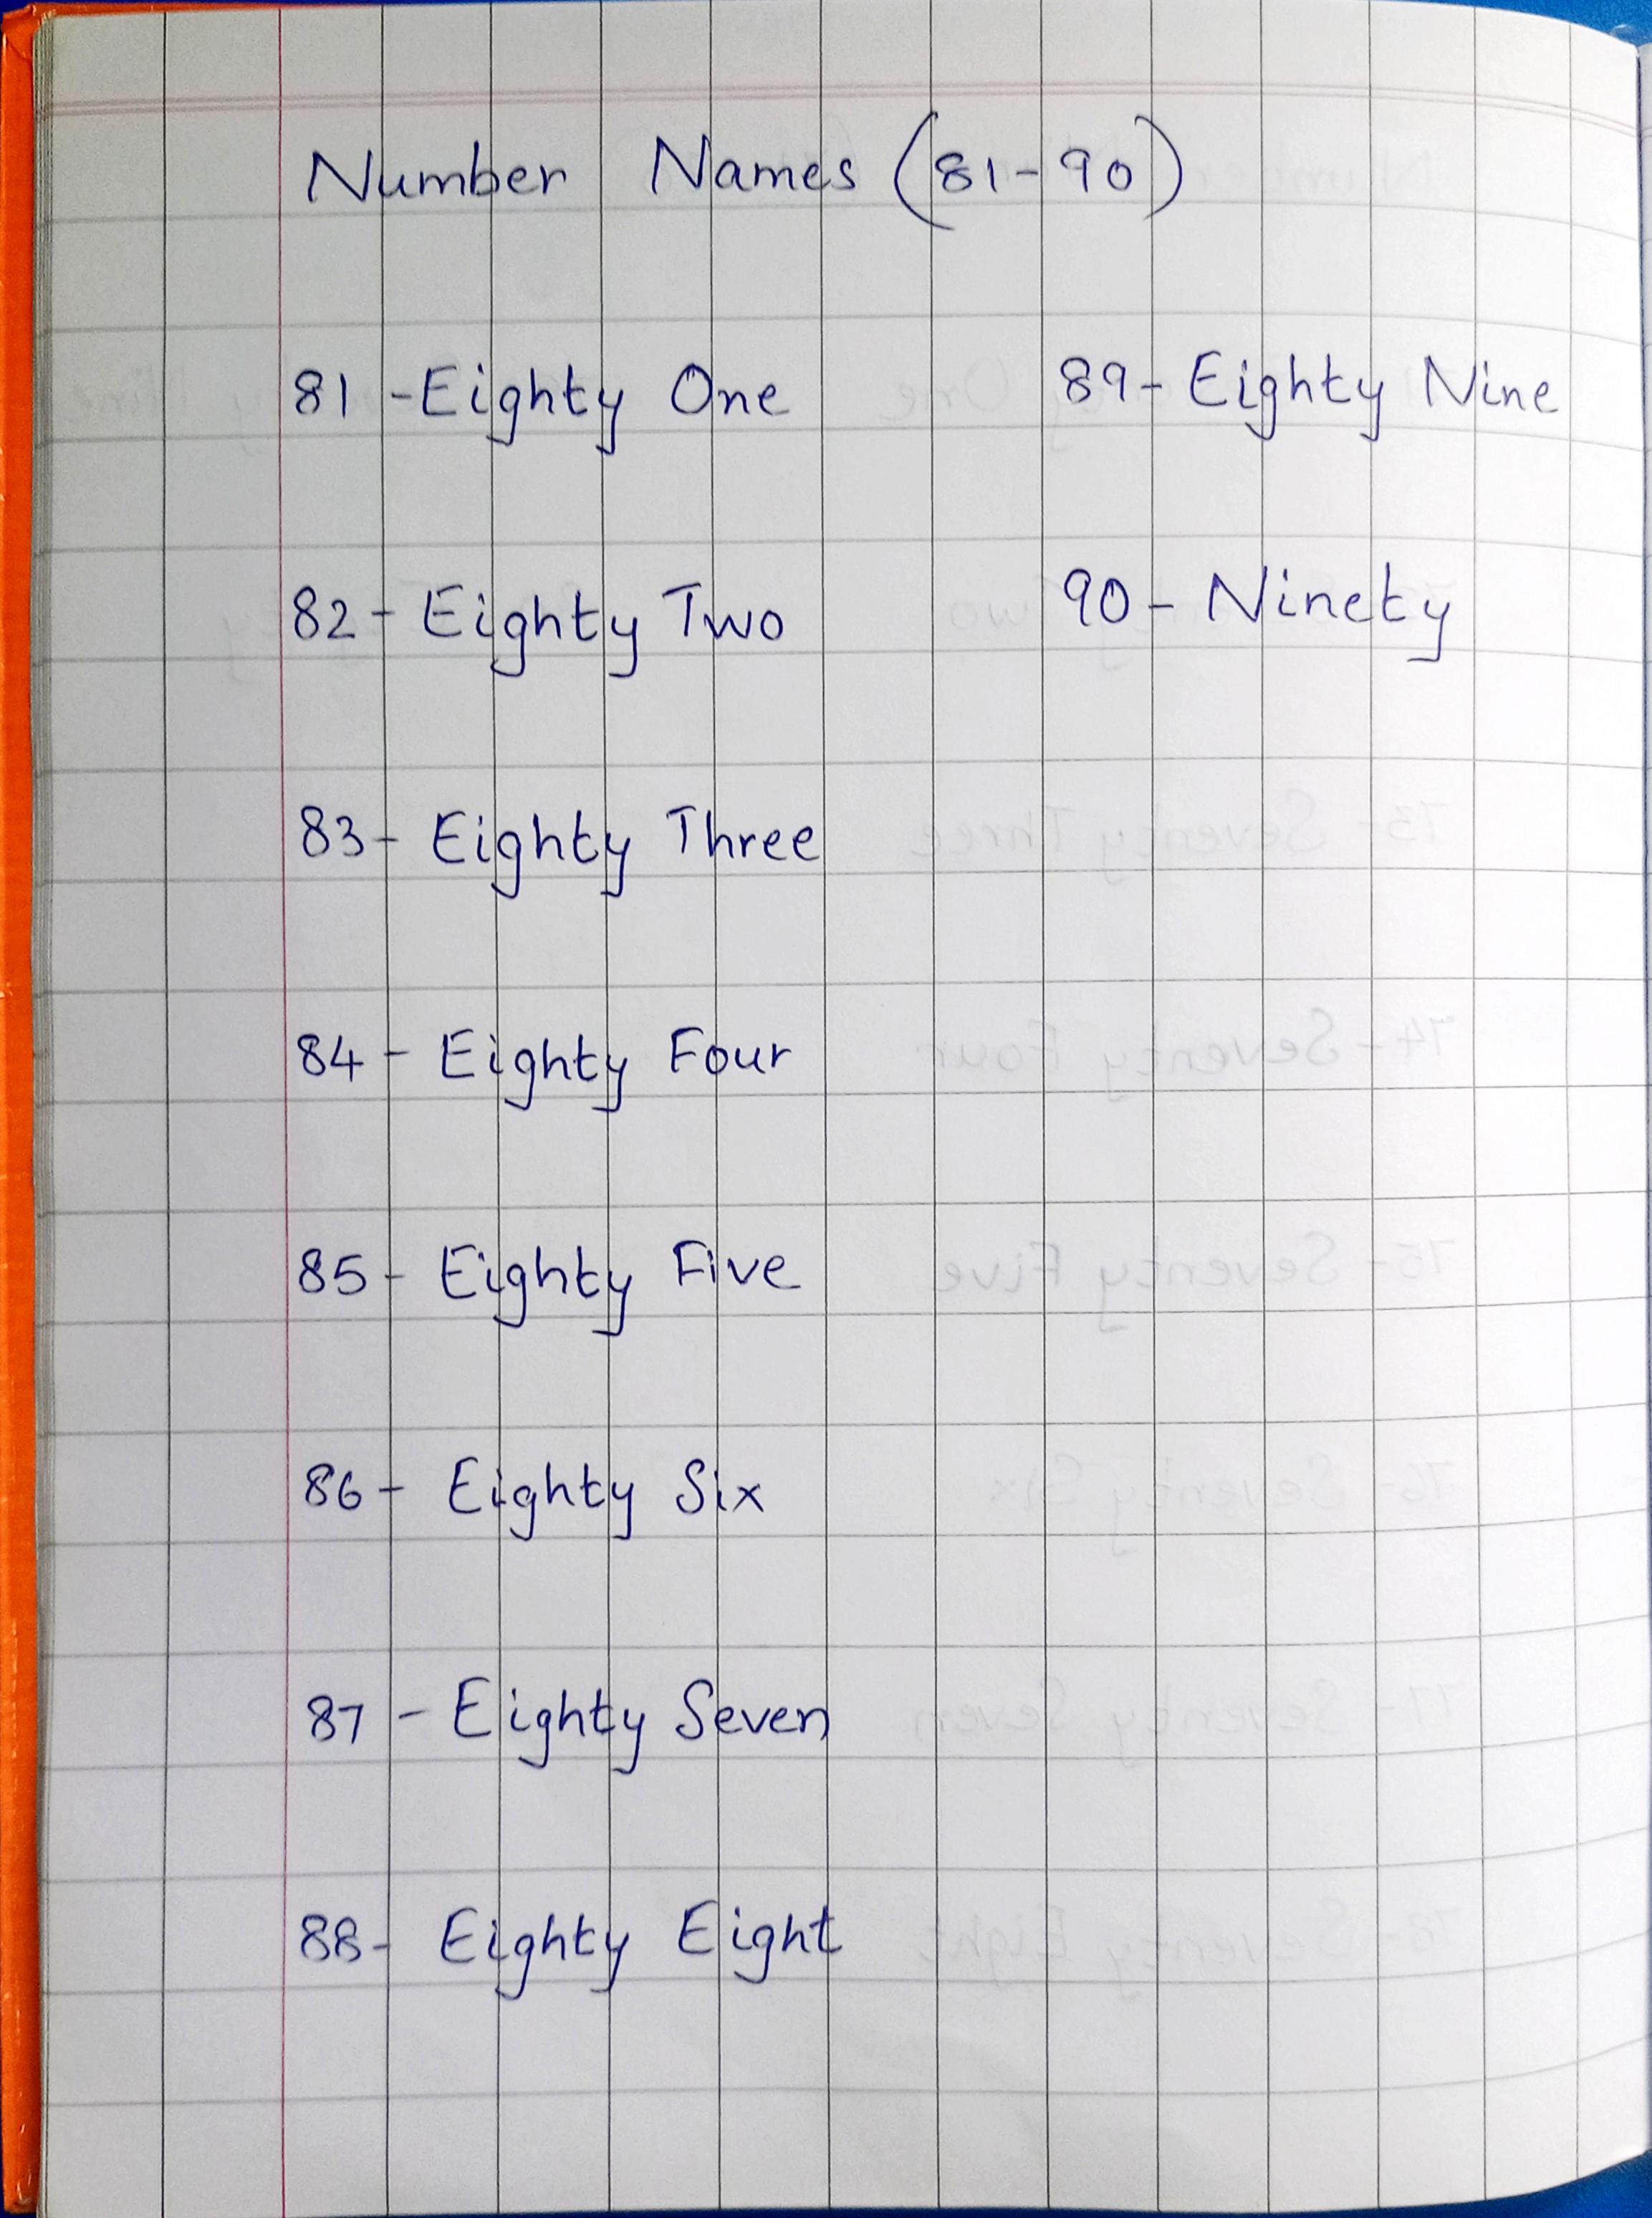 Number Names (81-90)
81 - Eighty One
82 - Eighty Two
83 - Eighty Three
84 - Eighty Four
85 - Eighty Five
86 - Eighty Six
87 - Eighty Seven
88 - Eighty Eight
89 - Eighty Nine
90 - Ninety